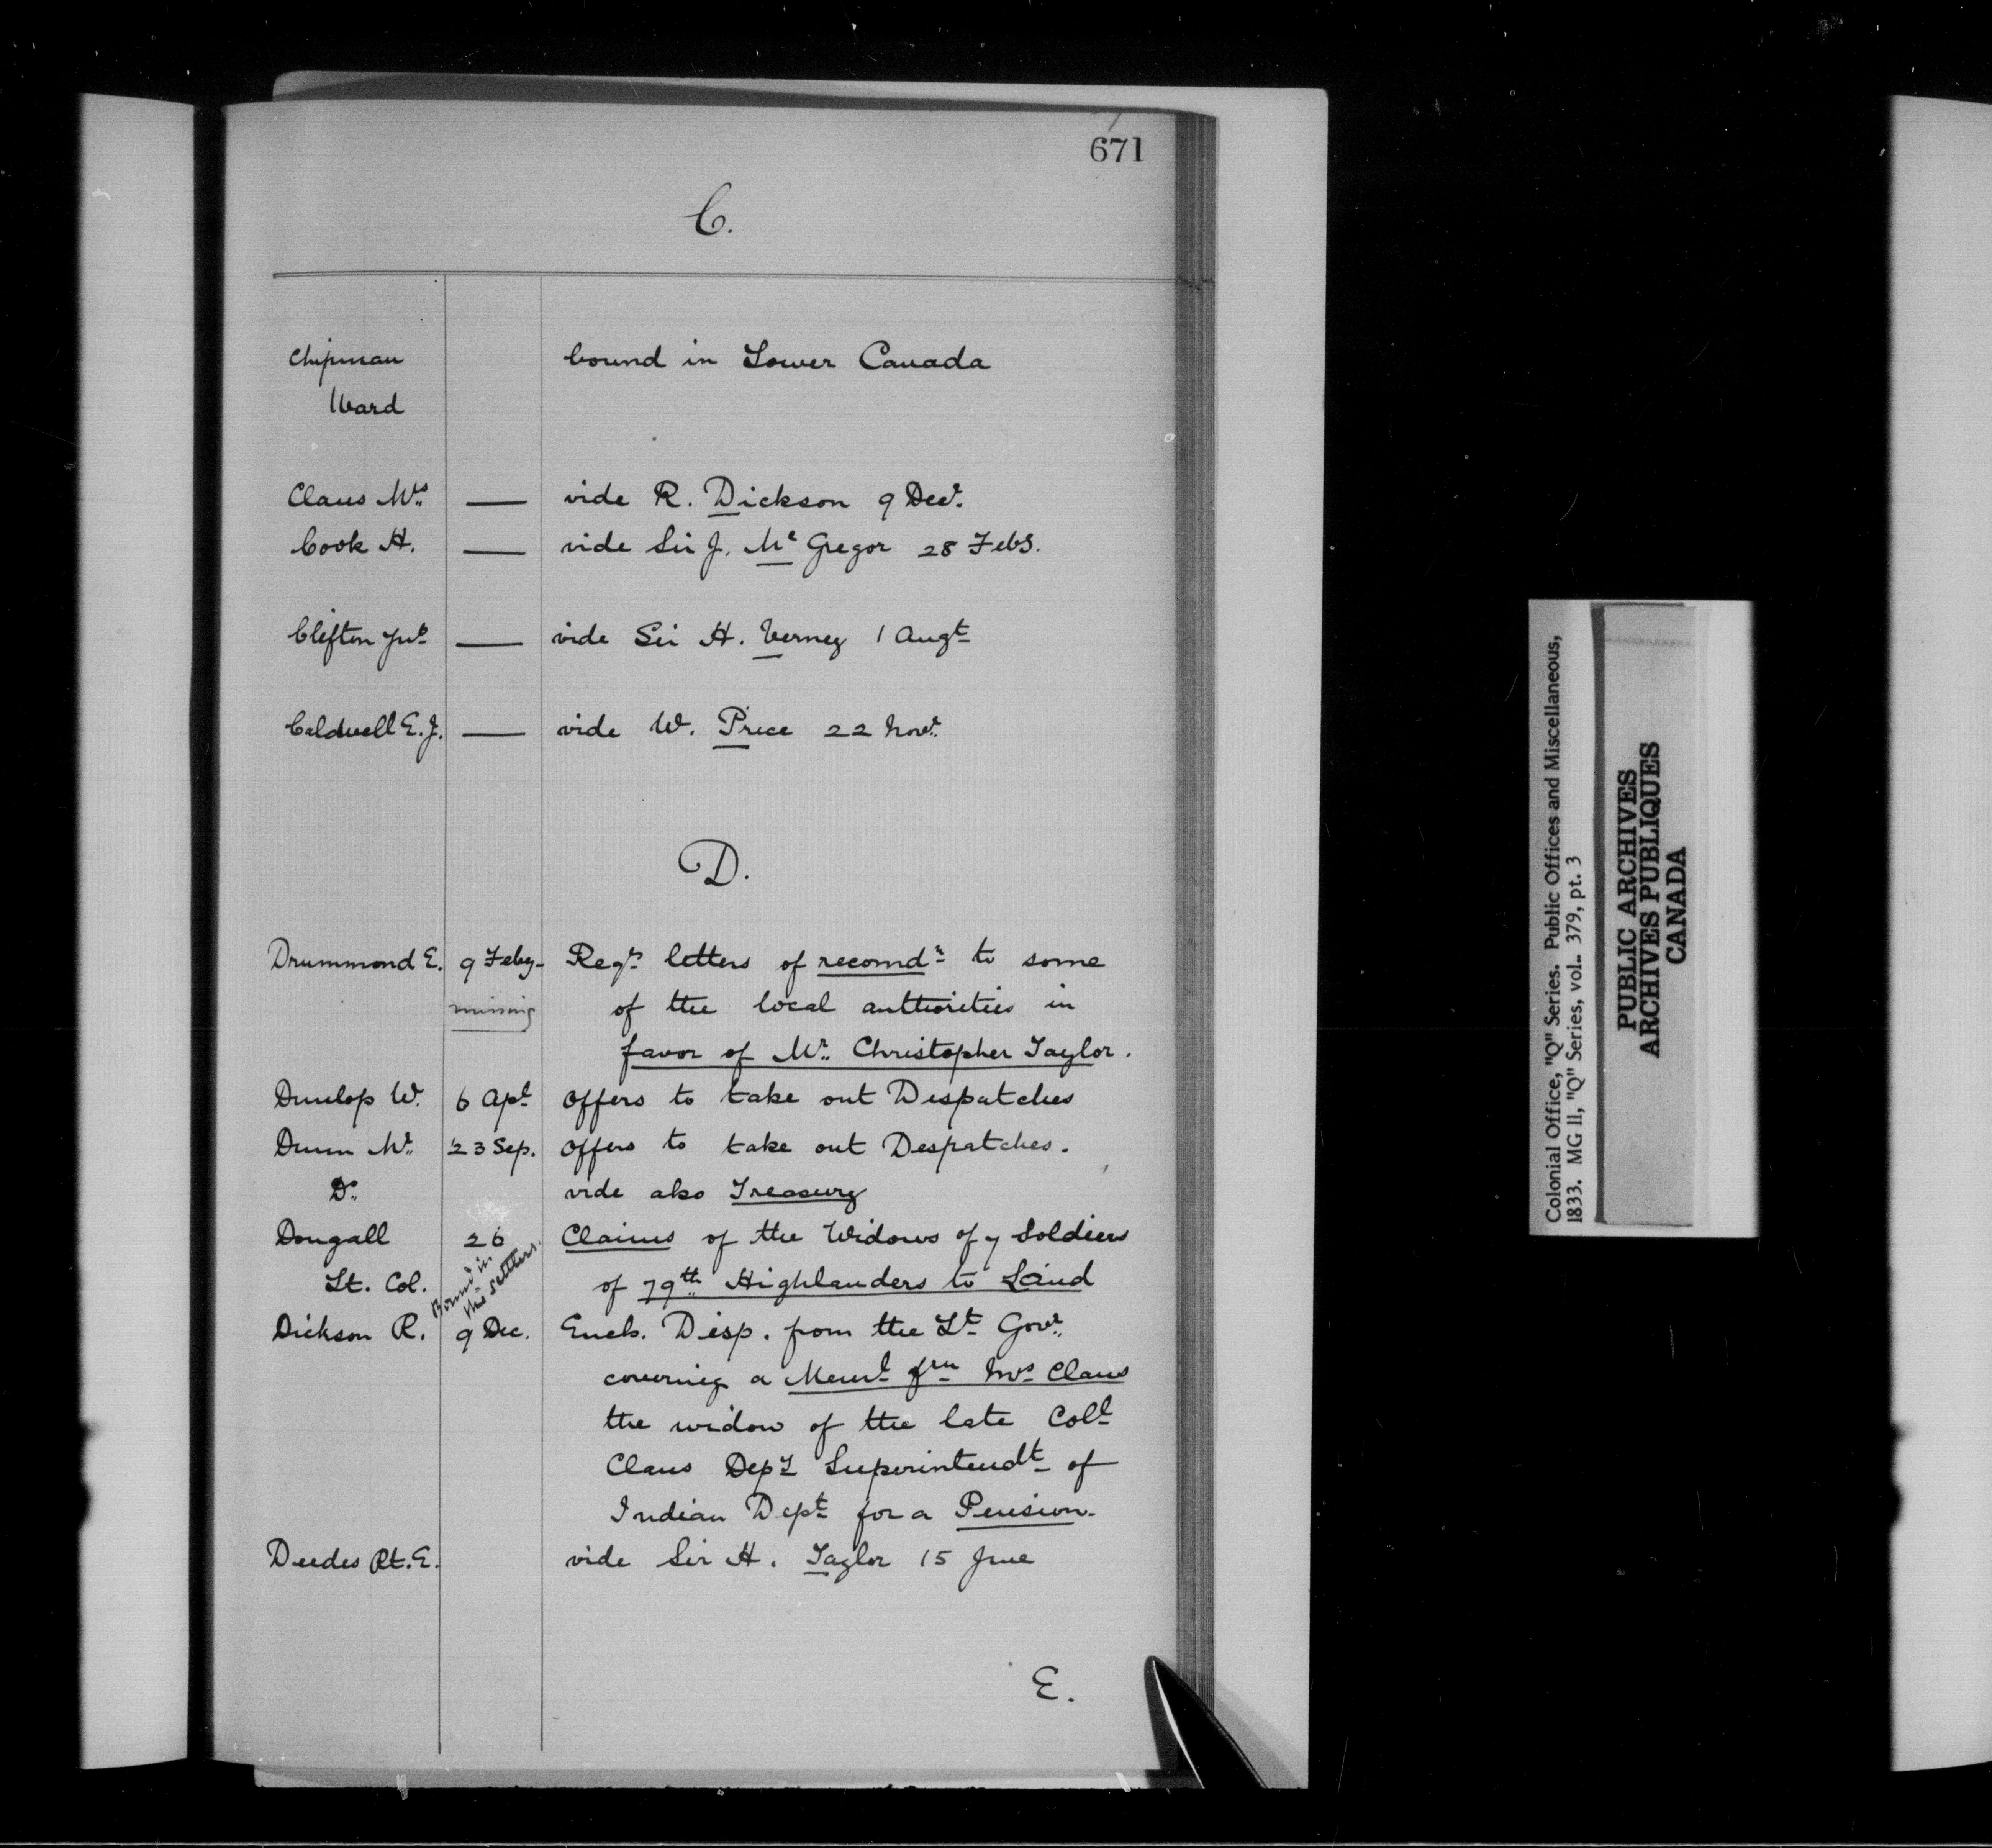 671
C.
Chipman bound in Lower Canada
Ward
Claus Mrs. — vide R. Dickson 9 Decr.
Cook H. — vide Sir J. Mc Gregor 28 Feby.
Clifton Jno — vide Sir H. Verney 1 Augt
Caldwell E. J. — vide W. Price 22 Novr.
D.
Drummond E. 9 Feby- Reqts letters of recomdn to some
missing of the local authorities in
favor of Mr. Christopher Taylor.
Dunlop W. 6 Apl offers to take out Despatches
Dunn Mr. 23 Sep. offers to take out Despatches.
Do. vide also Treasury
Dougall 26 Claims of the Widows of y Soldiers
Bound in
the settlers.
Lt. Col. of 79th Highlanders to Land
Dickson R. 9 Dec. Encls. Disp. from the Lt Govr.
covering a Meml frm Mrs Claus
the widow of the late Coll
Claus Depy Superintendt of
Indian Dept for a Pension-
Deedes Rt. E. vide Sir H. Taylor 15 June
E.
Colonial Office, "Q" Series. Public Offices and Miscellaneous,
1833. MG 11, "Q" Series, vol. 379, pt. 3
PUBLIC ARCHIVES
ARCHIVES PUBLIQUES
CANADA